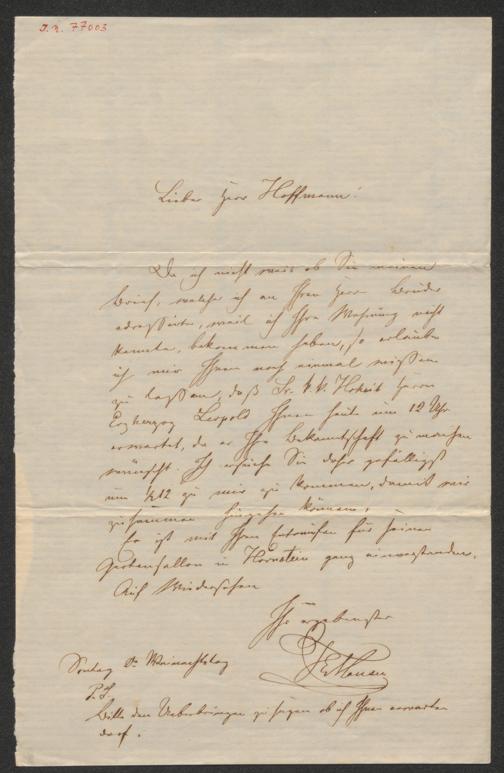 J. N. 77003
Lieber Herr Hoffmann!
Da ich nicht weis ob Sie meinen
Brief, welcher ich an Ihren Herr Bruder
adressirte, weil ich Ihre Wohnung nicht
kannte, bekommen haben, so erlaube
ich mir Ihnen noch einmal wissen
zu lassen, daß Sr. k. k. Hoheit Herrn
Erzherzog Leopold Ihnen heute um 12 Uhr
erwartet, da er Ihre Bekantschaft zu machen
wünscht. Ich ersuche Sie daher gefälligst
um ½12 zu mir zu kommen, damit wir
zusammen hingehen können.
Er ist mit Ihren Entwürfen für seinen
Gartensallon in Hörnstein ganz einverstanden.
Auf Wiedersehen
Ihr ergebenster
Hansen
Sontag Weinachtstag
P.S.
Bitte den Ueberbringer zu sagen ob ich Ihnen erwarten
darf.